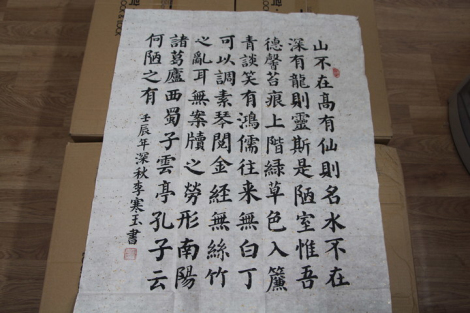 山不在高有仙則名水不在
深有龍則靈斯是陋室惟吾
德馨苔痕上階綠草色入簾
青談笑有鴻儒往來無白丁
可以調素琴閱金經無絲竹
之亂耳無案牘之勞形南陽
諸葛廬西蜀子雲亭孔子云
何陋之有
壬辰年深秋李寒玉書